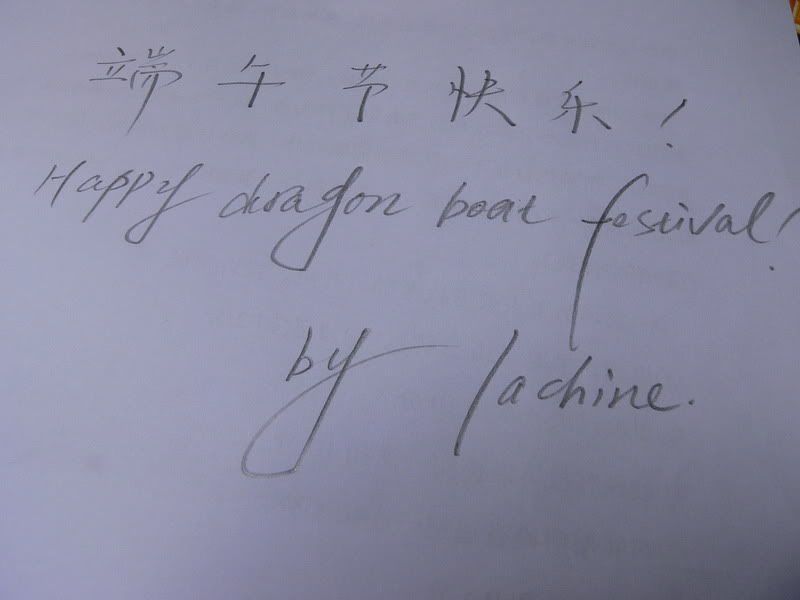 端午节快乐!
Happy dragon boat festival!
by Jachine.